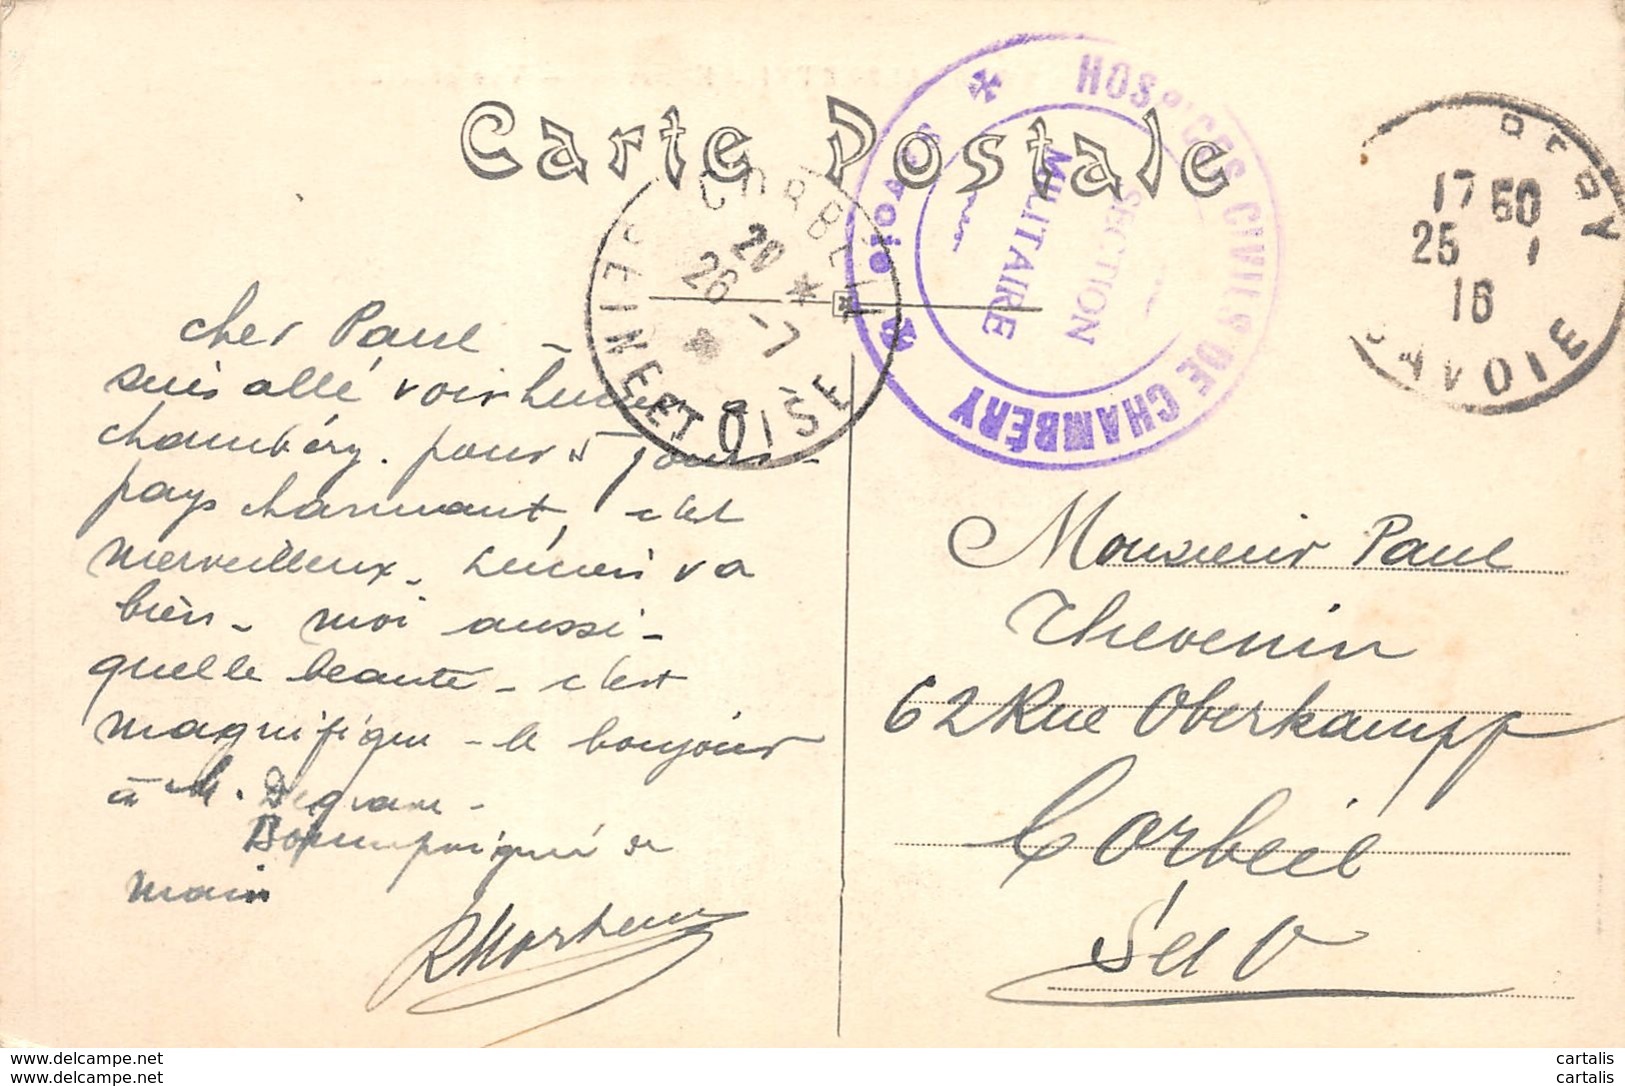 Carte Postale
HOSPICES CIVILS DE CHAMBÉRY
Savoie
SECTION
MILITAIRE
CORBEIL
20
26 -7
SEINE ET OISE
BERY
17 50
25 1
16
SAVOIE
Cher Paul -
suis allé voir Lucien a
chambéry. pour 5 jours -
pays charmant, c'est
merveilleux. Lucien va
bien - moi aussi -
quelle beauté - c'est
magnifique - le bonjour
à M.
Bonne poignée de
main
Monsieur Paul
Thevenin
62 Rue Oberkampf
Corbeil
S et O
www.delcampe.net
www.delcampe.net
cartalis
cartalis